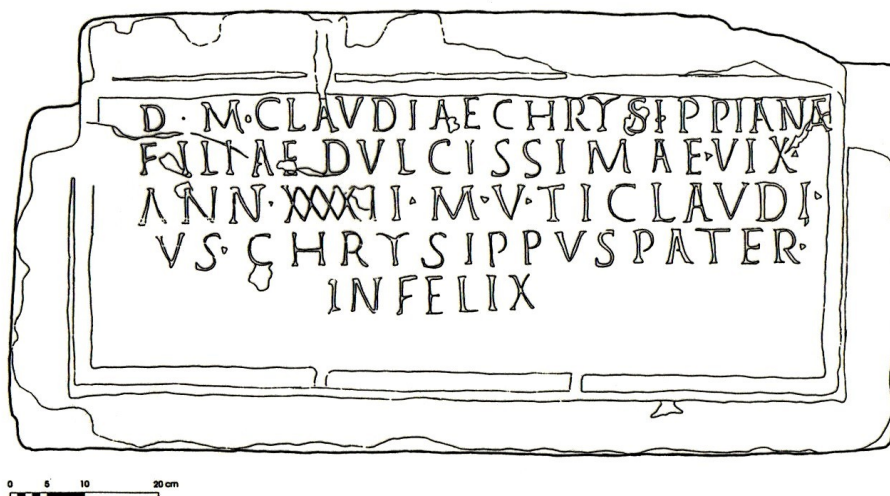 D · M · CLAVDIAE CHRYSIPPIANAE
FILIAE DVLCISSIMAE · VIX ·
ANN · XXXXII · M · V · TI CLAVDI ·
VS · CHRYSIPPVS PATER ·
INFELIX
0 5 10 20 cm